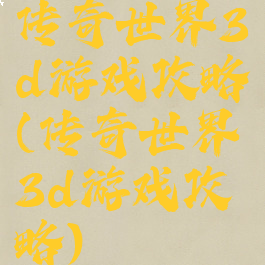 传奇世界3
d游戏攻略
(传奇世界
3d游戏攻
略)